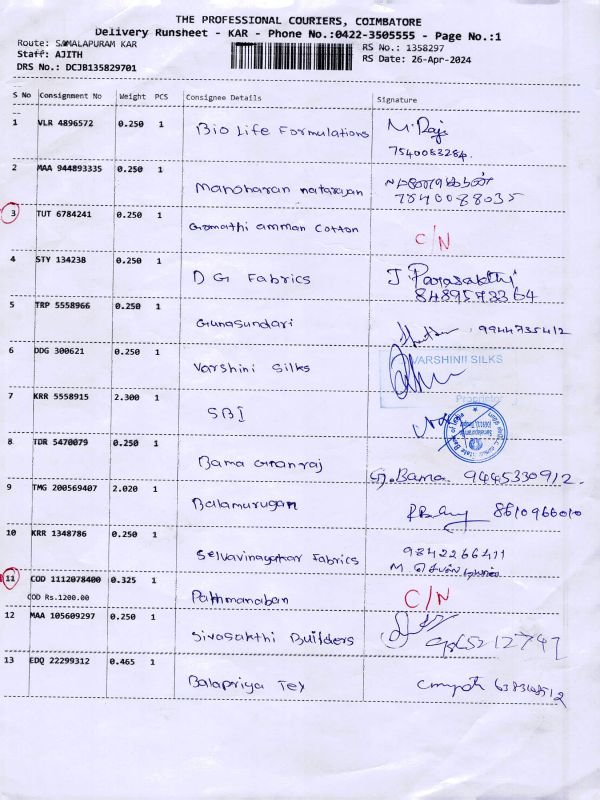 THE PROFESSIONAL COURIERS, COIMBATORE
Delivery Runsheet - KAR - Phone No.:0422-3505555 - Page No.:1
Route: SAMALAPURAM KAR
RS No.: 1358297
Staff: AJITH
RS Date: 26-Apr-2024
DRS No.: DCJB135829701
S No Consignment No Weight PCS Consignee Details Signature
1 VLR 4896572 0.250 1 Bio Life Formulations M. Raji
7540083284.
2 MAA 944893335 0.250 1 Manoharan natarajan
7540088035
3 TUT 6784241 0.250 1 Gomathi amman cotton C/N
4 STY 134238 0.250 1 DG Fabrics J. Parasakthi
8489573364
5 TRP 5558966 0.250 1 Gunasundari 9944735412
6 DDG 300621 0.250 1 Varshini Silks VARSHINII SILKS
7 KRR 5558915 2.300 1 SBI
State Bank of India
8 TDR 5470079 0.250 1 Bama Gnanraj G. Bama 9445330912.
9 TMG 200569407 2.020 1 Balamurugan 8610966010
10 KRR 1348786 0.250 1 Selvavinayakar Fabrics 9842266411
M
11 COD 1112078400 0.325 1 Pathmanaban C/N
COD Rs.1200.00
12 MAA 105609297 0.250 1 Sivasakthi Builders
13 EDQ 22299312 0.465 1 Balapriya Tex